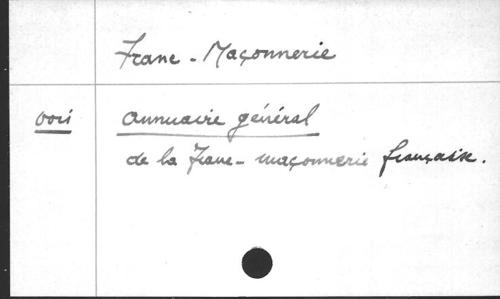 Franc-Maçonnerie
voir Annuaire général
de la Franc-maçonnerie française.